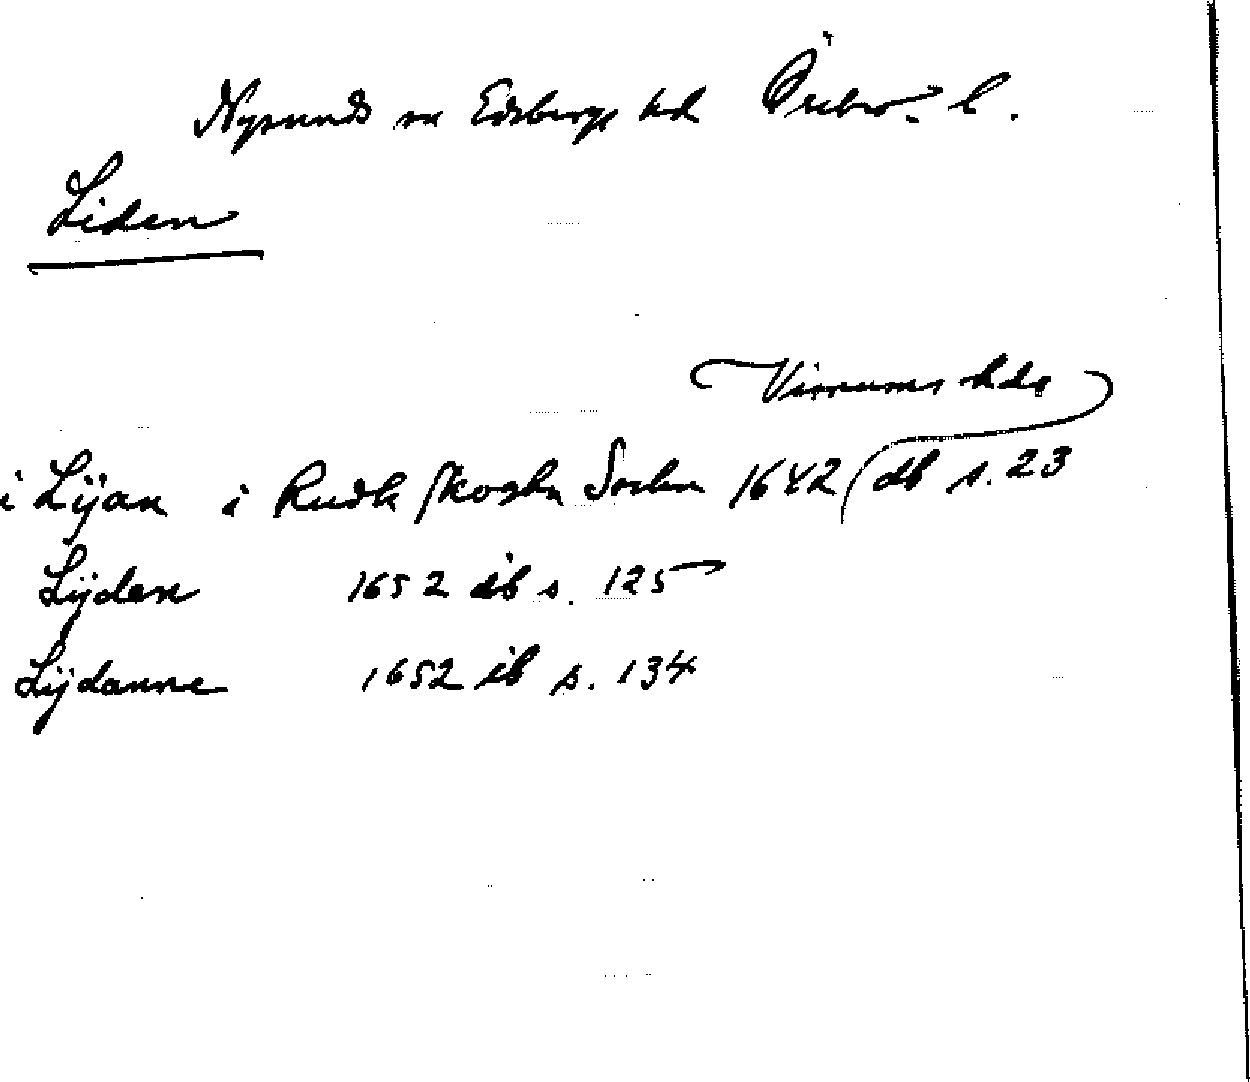 Nysunds sn Edsbergs hd Örebro l.
Liden
Visnums hds
i Lijan i Rudk skoghz Sochn 1642 db s. 23
Lijden 1652 ib s. 125
Lijdanne 1652 ib s. 134